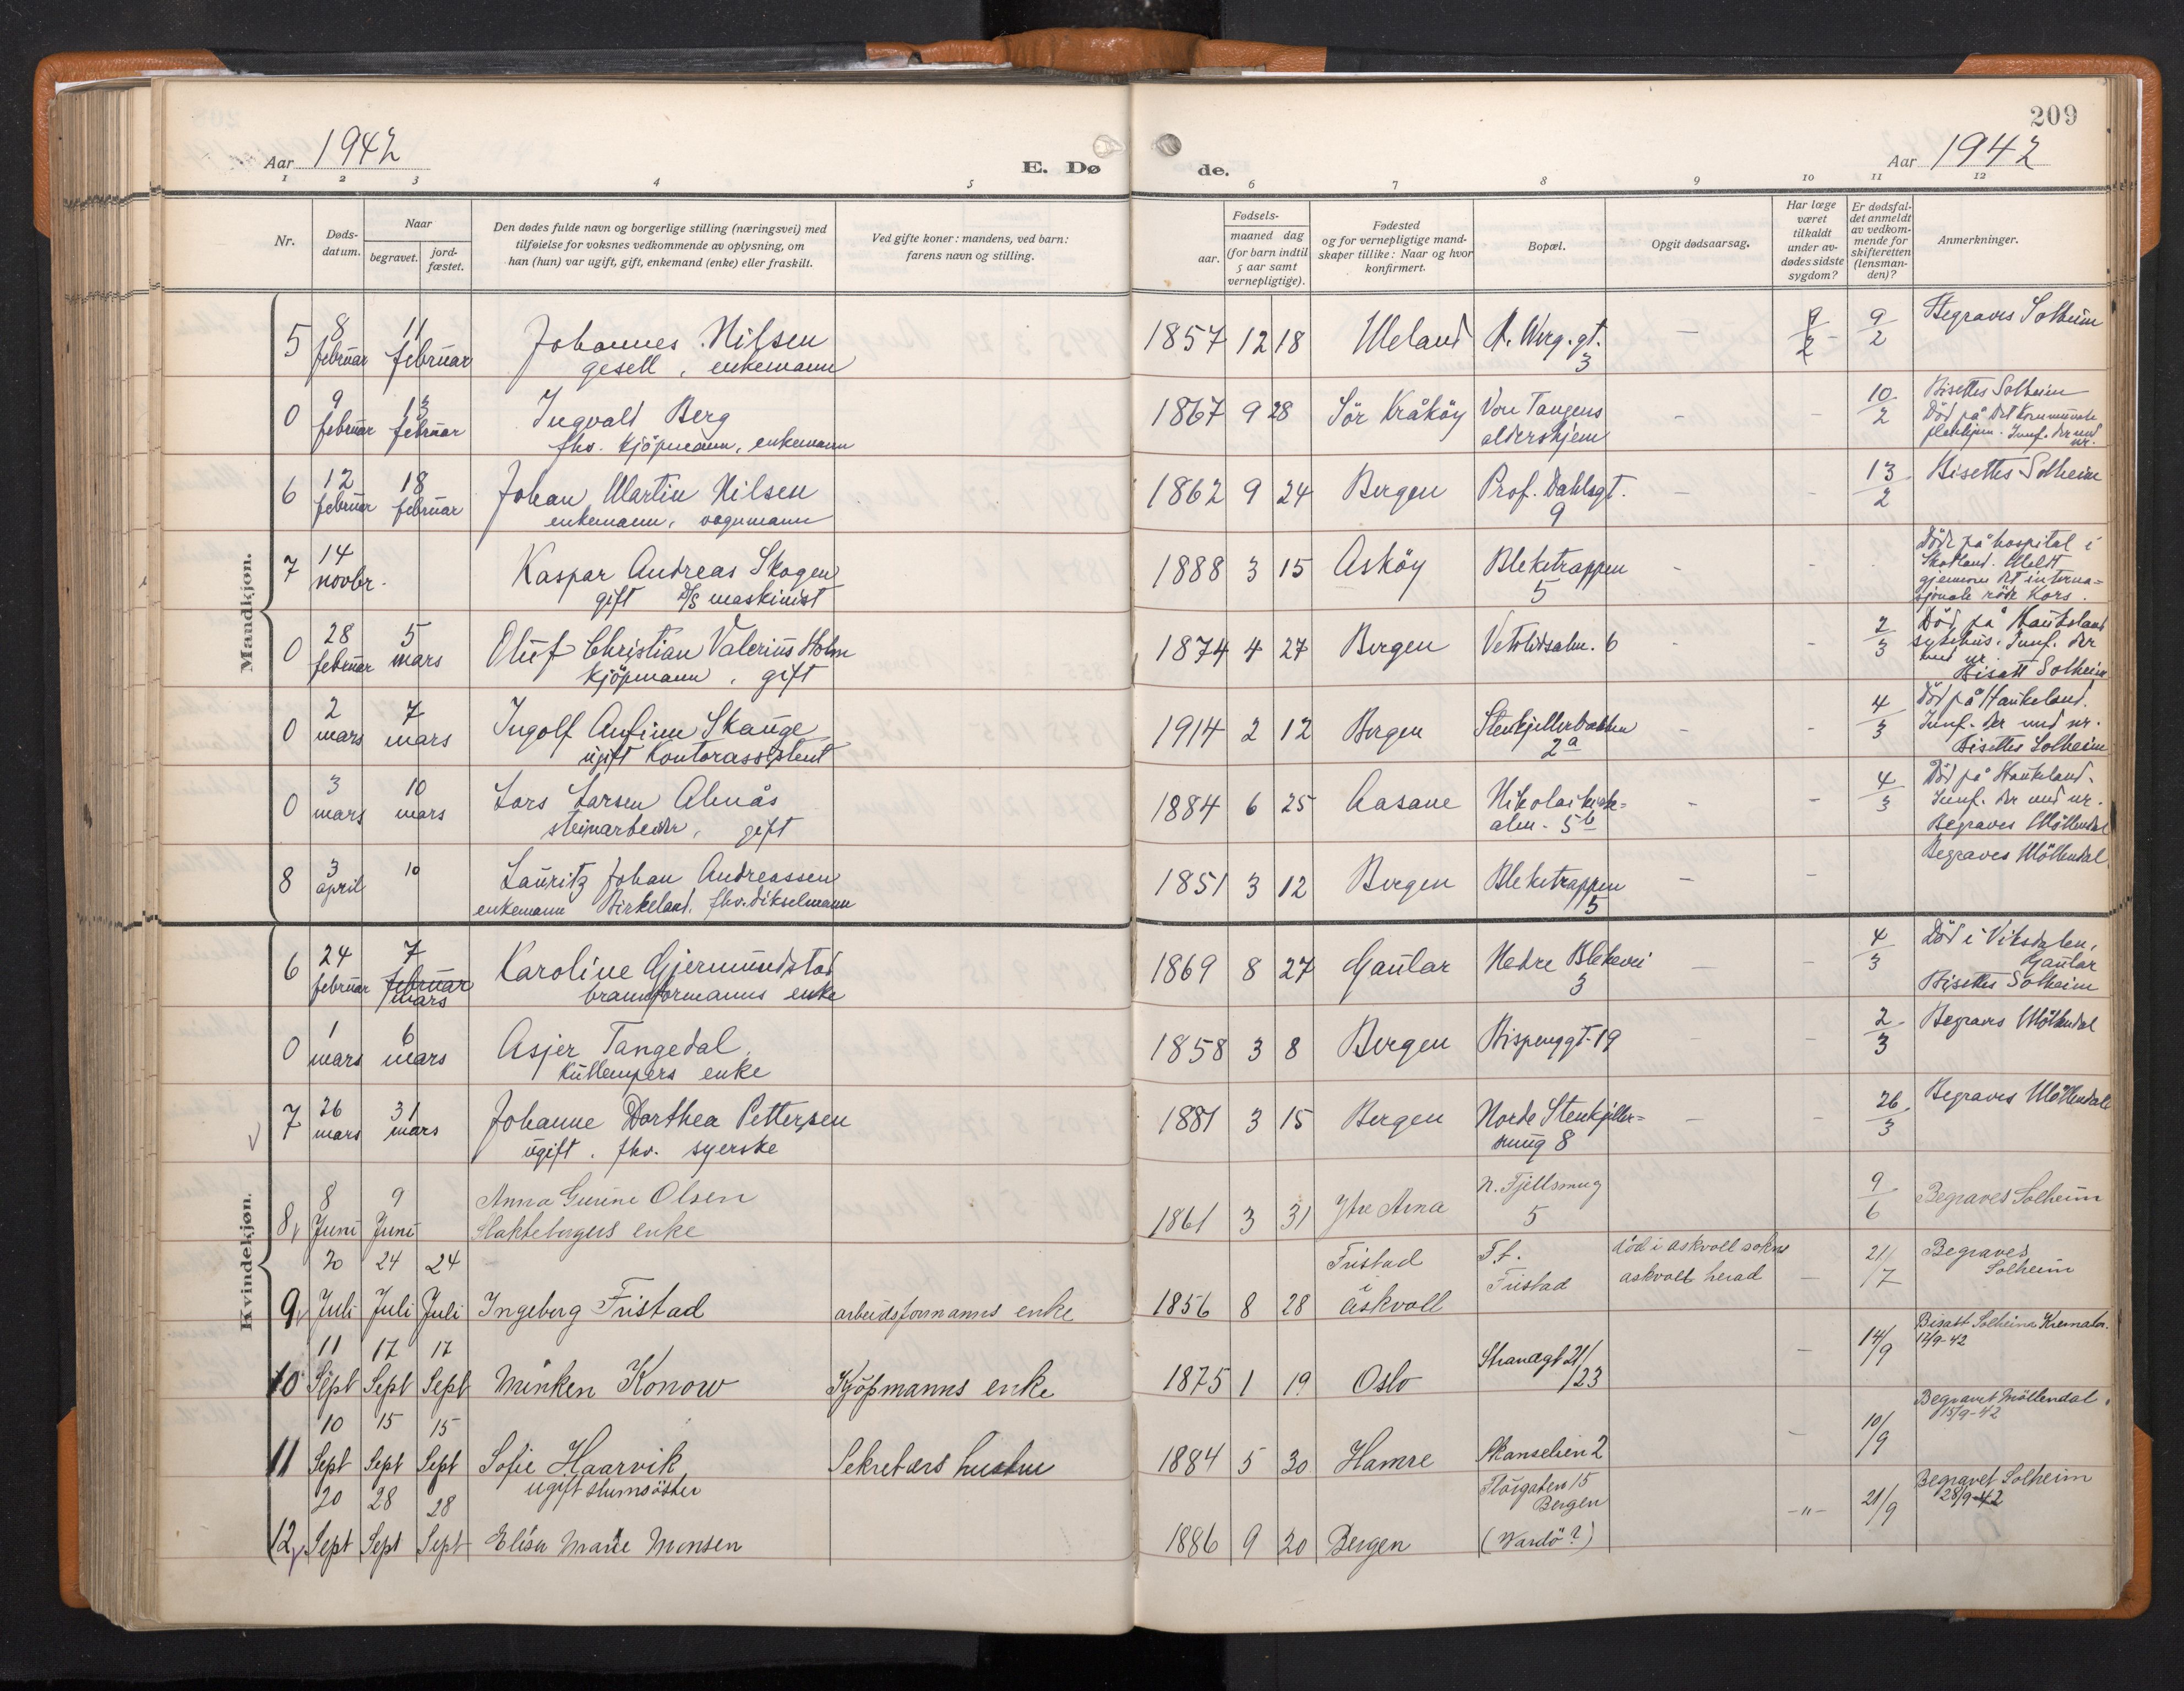 209
Aar 1942
E. Dø
de.
Aar 1942
1 2 3 4 5 6 7 8 9 10 11 12
Nr.
Døds-
datum.
Naar
begravet.
jord-
fæstet.
Den dødes fulde navn og borgerlige stilling (næringsvei) med
tilføielse for voksnes vedkommende av oplysning, om
han (hun) var ugift, gift, enkemand (enke) eller fraskilt.
Ved gifte koner: mandens, ved barn:
farens navn og stilling.
Fødsels-
aar.
maaned dag
(for barn indtil
5 aar samt
vernepligtige).
Fødested
og for vernepligtige mand-
skaper tillike: Naar og hvor
konfirmert.
Bopæl.
Opgit dødsaarsag.
Har læge
været
tilkaldt
under av-
dødes sidste
sygdom?
Er dødsfal-
det anmeldt
av vedkom-
mende for
skifteretten
(lensman-
den)?
Anmerkninger.
Mandkjøn.
5 8 februar 11 februar Johannes Nilsen 1857 12 18 Meland N. Werg.gt. 3 9/2 9/2 Begraves Solheim
gesell, enkemann
0 9 februar 13 februar Ingvald Berg 1867 9 28 Sör Kråköy Von Tangens aldershjem - - 10/2 Bisettes Solheim
fhv. kjöpmann, enkemann Död på det Kommunale pleiehjem. Innf. der med nr.
6 12 februar 18 februar Johan Martin Nilsen 1862 9 24 Bergen Prof. Dahlsgt. 9 - - 13/2 Bisettes Solheim
enkemann, vognmann
7 14 novbr. Kaspar Andreas Skogen 1888 3 15 Asköy Bleketrappen 5 - - Döde på hospital i
gift D/S maskinist Skotland. Meldt
gjennom det interna=
sjonale röde Kors.
0 28 februar 5 mars Oluf Christian Valerius Holm 1874 4 27 Bergen Vetrlidsalm. 6 - - 2/3 Död på Haukeland
kjöpmann, gift sykehus. Innf. der
med nr.
Bisatt Solheim
0 2 mars 7 mars Ingolf Anfinn Skauge 1914 2 12 Bergen Stenkjellerbakken 2a - - 4/3 Död på Haukeland.
ugift Kontorassistent Innf. der med nr.
Bisettes Solheim
0 3 mars 10 mars Lars Larsen Almås 1884 6 25 Aasane Nikolaikirke= alm. 5b - - 4/3 Död på Haukeland.
steinarbeider, gift Innf. der med nr.
Begraves Möllendal
8 3 april 10 Lauritz Johan Andreassen 1851 3 12 Bergen Bleketrappen 5 - - Begraves Möllendal
enkemann Birkeland. fhv. dikselmann
Kvindekjøn.
6 24 februar 7 februar mars Karoline Gjermundstad 1869 8 27 Gaular Nedre Blekevei 3 - - 4/3 Död i Viksdalen,
brannformanns enke Gaular
Bisettes Solheim
0 1 mars 6 mars Asjer Tangedal 1858 3 8 Bergen Bispenggt. 19 - - 2/3 Begraves Möllendal
Kullempers enke
7 26 mars 31 mars Johanne Dorthea Pettersen 1881 3 15 Bergen Nordre Stenkjeller= smug 8 - - 26/3 Begraves Möllendal
ugift. fhv. syerske
8 8 Juni 9 Juni Anna Gurine Olsen 1861 3 31 Ytre Arna N. Fjellsmug 5 9/6 Begraves Solheim
Slakteborgers enke
9 20 Juli 24 Juli 24 Juli Ingeborg Fristad arbeidsformanns enke 1856 8 28 Fristad i Askvoll Ft. Fristad död i Askvoll sokn askvoll herad - 21/7 Begraves Solheim
10 11 Sept 17 Sept 17 Sept Minken Konow Kjöpmanns enke 1875 1 19 Oslo Strandgt 21/23 - 14/9 Bisatt Solheim Kremator. 17/9-42
11 10 Sept 15 Sept 15 Sept Sofie Haarvik Sekretærs hustru 1884 5 30 Hamre Skanselien 2 - 10/9 Begravet Möllendal 15/9-42
12 20 Sept 28 Sept 28 Sept ugift slumsöster
Elisa Marie Monsen 1886 9 20 Bergen Storgaten 15 Bergen (Vardö?) -"- 21/9 Begravet Solheim 28/9-42